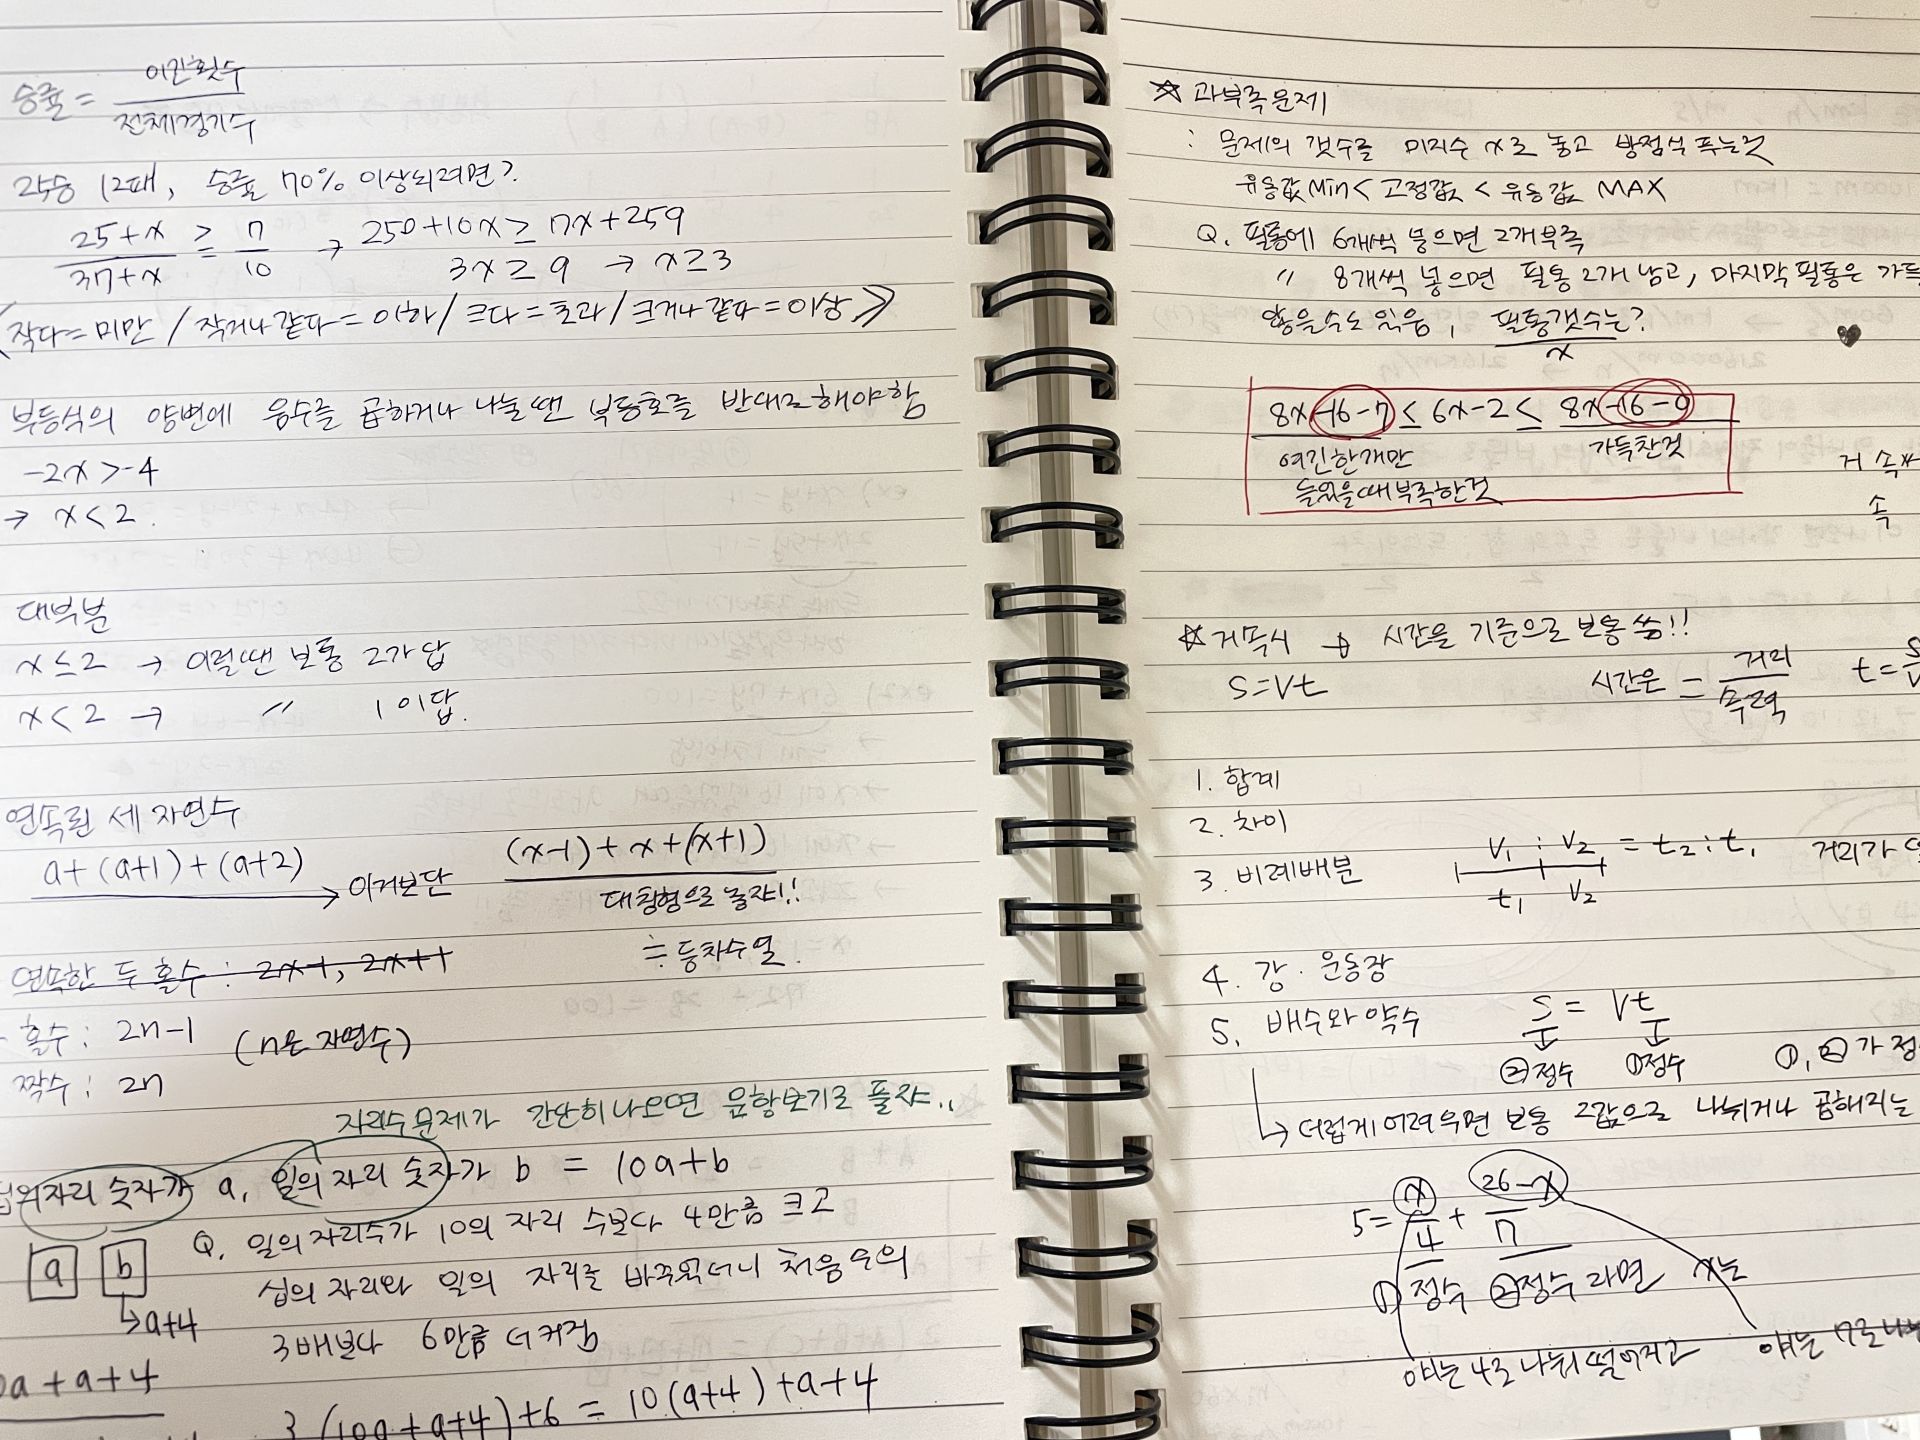 승률 = 이긴횟수 / 전체경기수
25승 12패, 승률 70% 이상되려면?
25+x / 37+x ≥ 7/10 → 250+10x ≥ 7x+259
3x ≥ 9 → x ≥ 3
작다=미만 / 작거나같다=이하 / 크다=초과 / 크거나 같다=이상 》
부등식의 양변에 음수를 곱하거나 나눌땐 부등호를 반대로해야함
-2x > -4
→ x < 2.
대부분
x ≤ 2 → 이럴땐 보통 2가 답
x < 2 → 〃 1이답.
연속된 세 자연수
a+(a+1)+(a+2) → 이거보단 (x-1)+x+(x+1)
대칭형으로 놓자!!
≒ 등차수열.
연속한 두 홀수 : 2x-1, 2x+1
홀수 : 2n-1 (n은 자연수)
짝수 : 2n
자리수문제가 간단히나오면 문항보기로 풀자..
십의자리 숫자가 a, 일의 자리 숫자가 b = 10a+b
a b
→a+4
Q. 일의자리수가 10의 자리 수보다 4만큼 크고
십의 자리와 일의 자리를 바꾸었더니 처음수의
3배보다 6만큼 더커짐
a+a+4
3(10a+a+4)+6 = 10(a+4)+a+4
☆ 과부족문제
: 문제의 갯수를 미지수 x로 놓고 방정식 푸는것
유동값Min < 고정값 < 유동값 MAX
Q. 필통에 6개씩 넣으면 2개부족
〃 8개씩 넣으면 필통 2개 남고, 마지막 필통은
않을수도 있음, 필통갯수는?
x
♥
8x-16-7 ≤ 6x-2 ≤ 8x-16-0
여긴한개만
들었을때부족한것
가득찬것
거 속
속
☆거속시 → 시간을 기준으로 보통 씀!!
S=Vt 시간은 = 거리 / 속력 t = S/V
1. 합계
2. 차이
3. 비례배분 V₁ : V₂ = t₂ : t₁ 거리가
t₁ V₂
4. 강·운동장
5. 배수와 약수 S = Vt
②정수 ①정수 ①, ②가
→ 더럽게 어려우면 보통 2값으로 나뉘거나 곱해지는
5 = x/4 + 26-x/7
①정수 ②정수 라면 x는
얘는 4로 나눠 떨어지고 얘는 7로